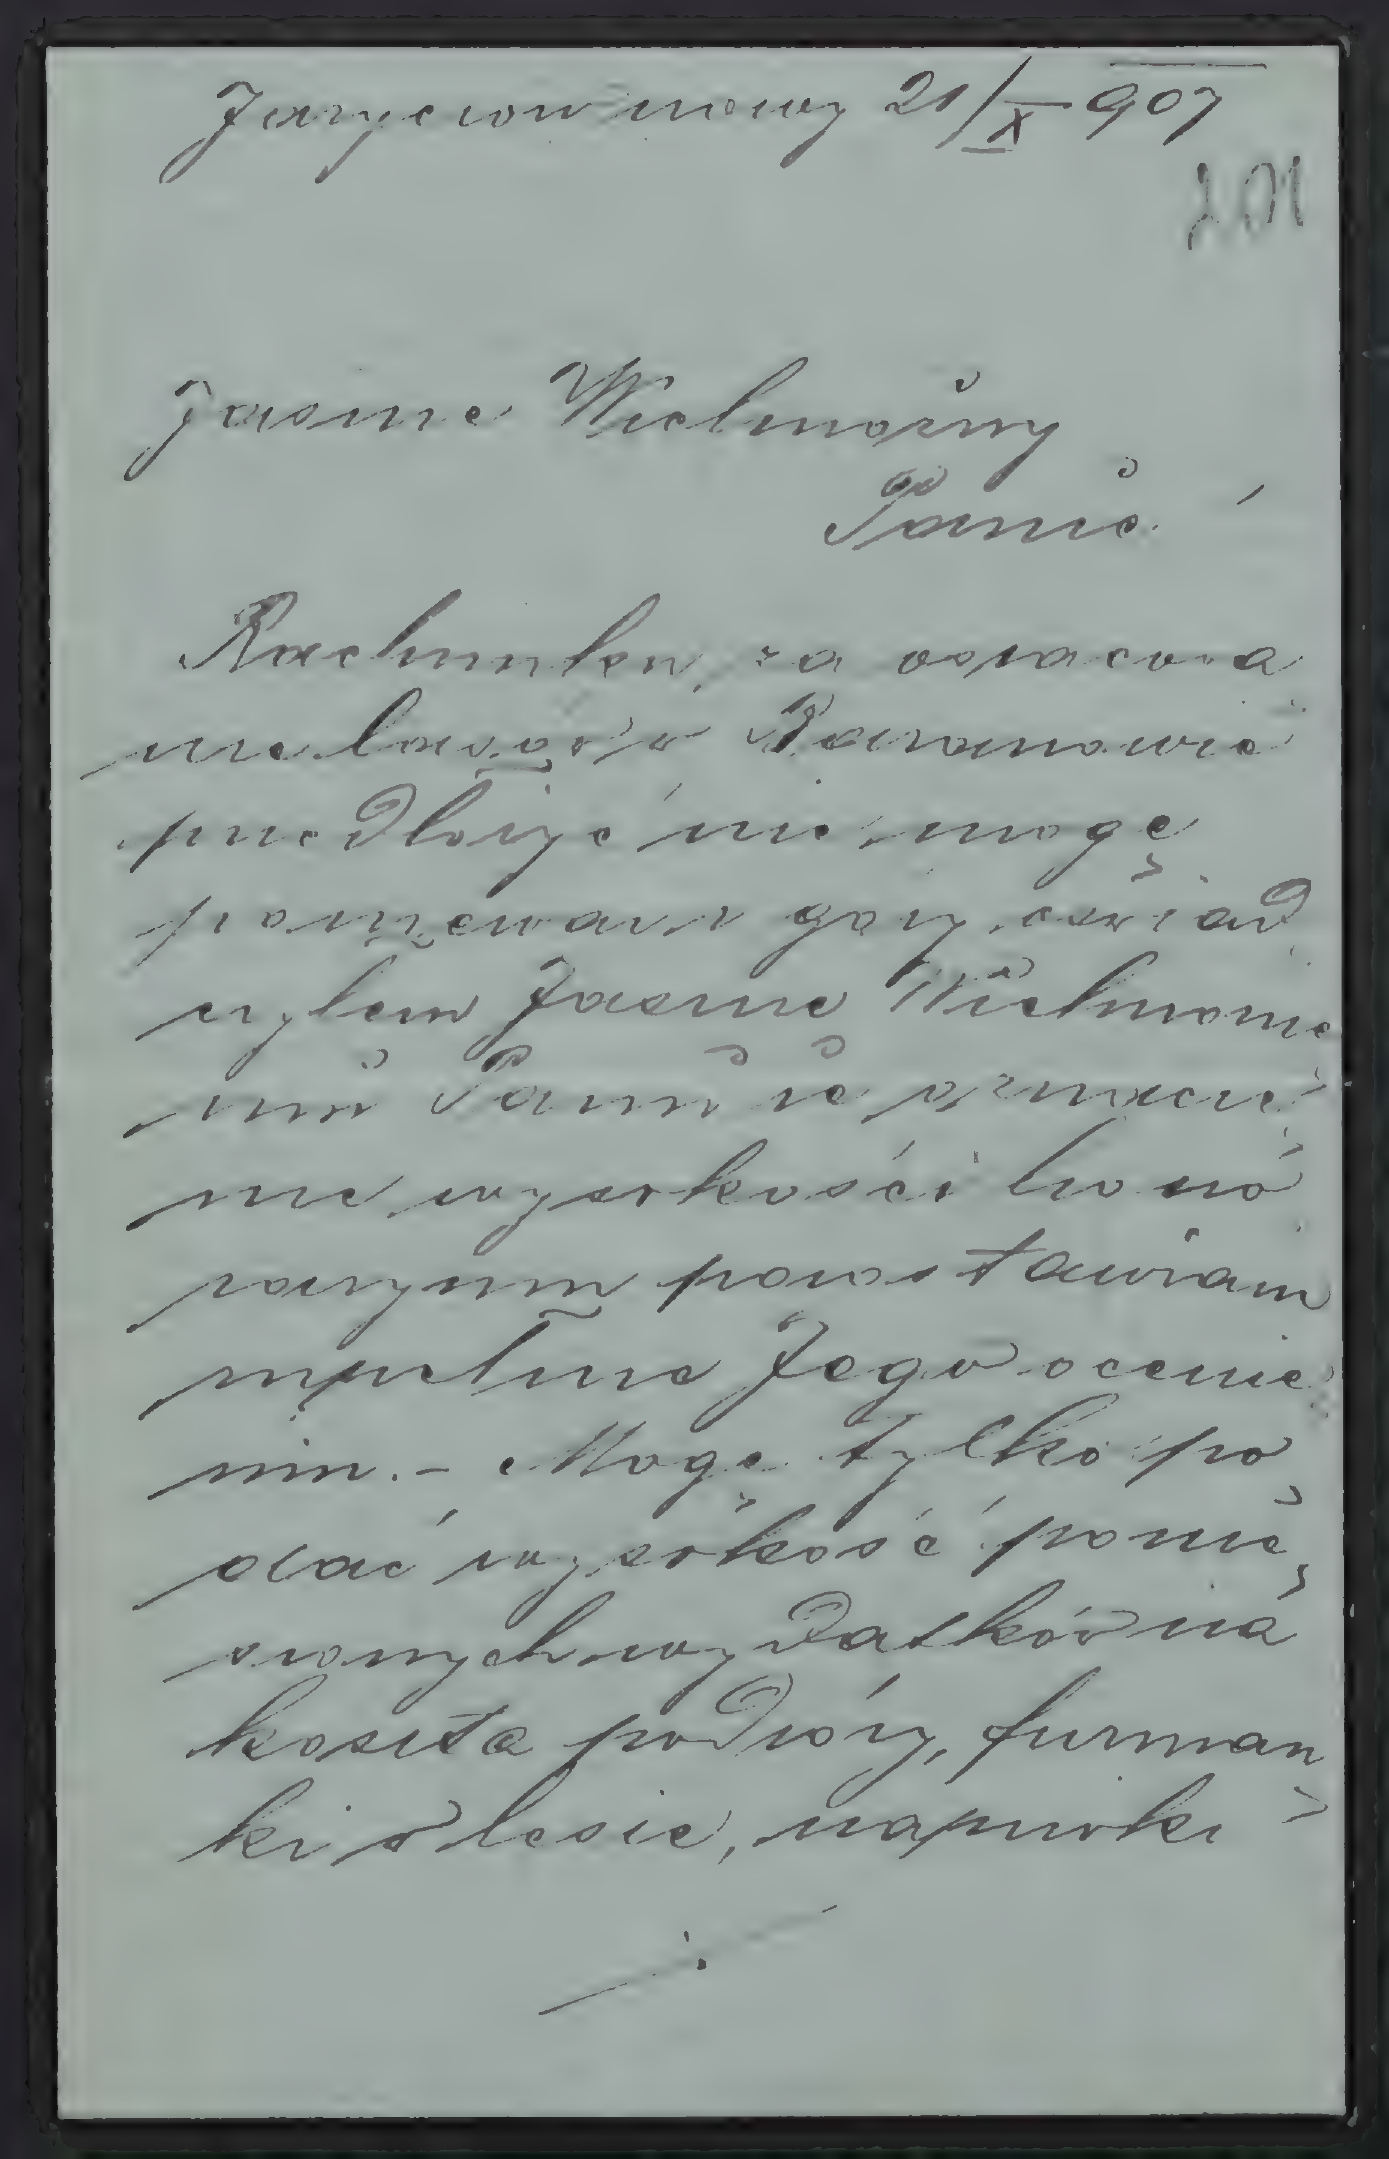 Jaryczow nowy 21/X 907
201
Jasnie Wielmożny
Panie
Rachunku za oszacowa
nie lasów w Baranowie
przedłożyć nie mogę
ponieważ gdy oświad
czyłem Jasnie Wielmożne
mu Panu że oznacze
nie wysokości hono
raryum pozostawiam
zupełnie Jego ocenie
niu. – Mogę tylko po
dać wysokość ponie
sionych wydatków na
koszta podróży, furman
ki w lesie, napiwki